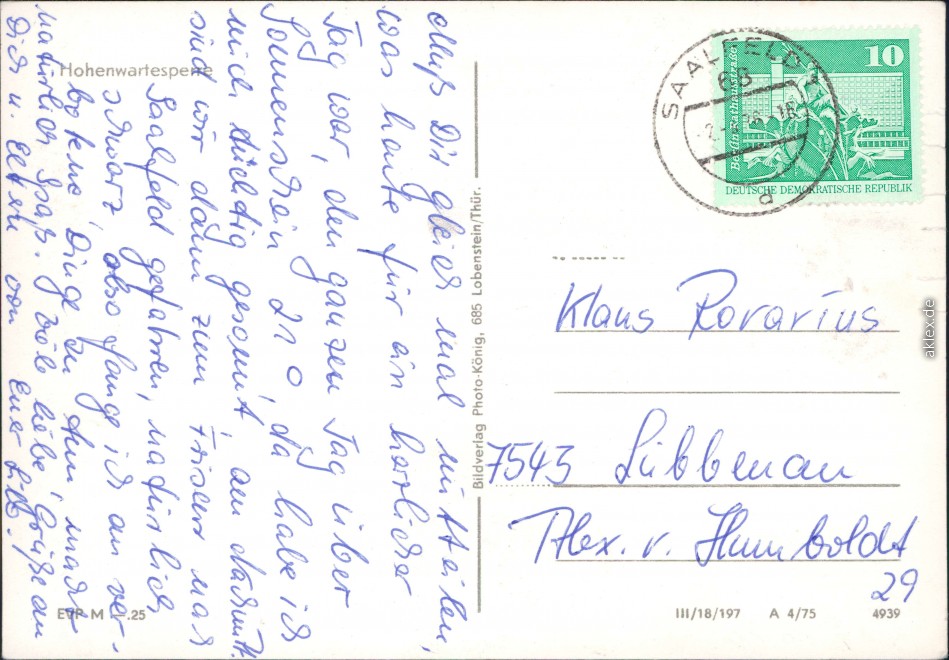 Hohenwartesperre
Muß Dir gleich mal mitteilen,
was heute für ein herrlicher
Tag war, den ganzen Tag über
Sonnenschein 21 0, da habe ich
mich tüchtig gesonnt, am Nachmitt.
sind wir dann zum Friseur nach
Saalfeld gefahren, natürlich
schwarz, also fange ich an ver-
botene Dinge zu tun, macht
natürlich Spaß. Viele liebe Grüße an
Dich u. Eltern von Euer
EVP M .25
Bildverlag Photo-König, 685 Lobenstein/Thür.
SAALFELD
68
d
10
Berlin, Rathausstraße
DEUTSCHE DEMOKRATISCHE REPUBLIK
Klaus Rovarius
7543 Lübbenau
Alex. v. Humboldt
29
III/18/197 A 4/75 4939
aklex.de